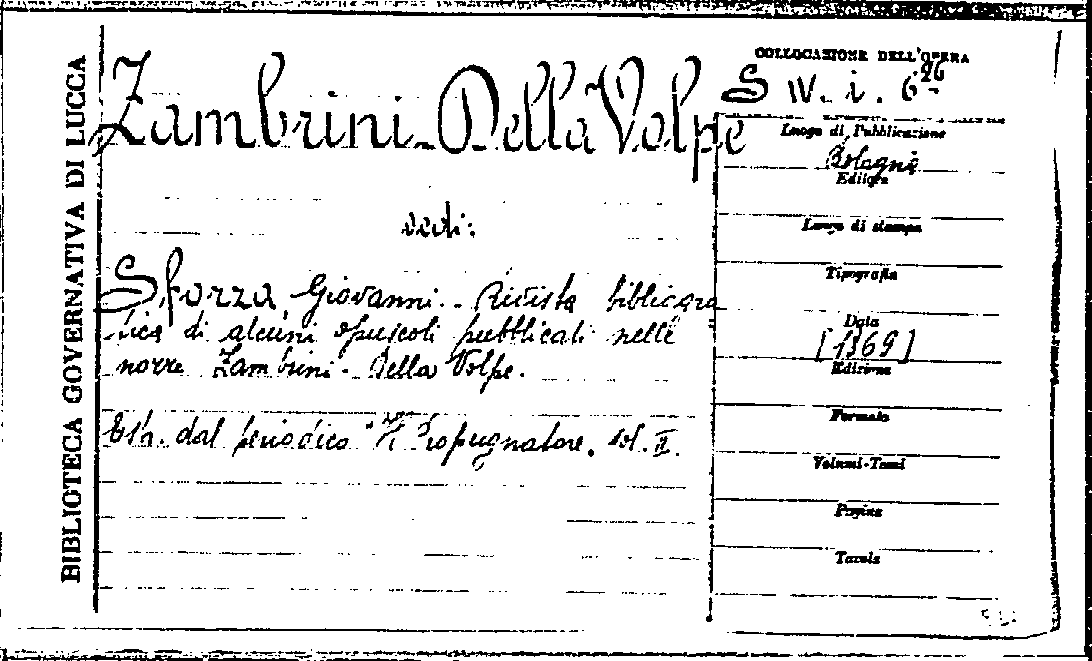 BIBLIOTECA GOVERNATIVA DI LUCCA
Zambrini-Della Volpe
vedi:
Sforza Giovanni - Rivista bibliogra
fica di alcuni opuscoli pubblicati nelle
nozze Zambrini - Della Volpe.
Estr. dal periodico "Il Propugnatore, vol. II.
COLLOCAZIONE DELL'OPERA
S IV. i. 6 26
Luogo di Pubblicazione
Bologna
Editore
Luogo di stampa
Tipografia
Data
[1869]
Edizione
Formato
Volumi-Tomi
Pagine
Tavole